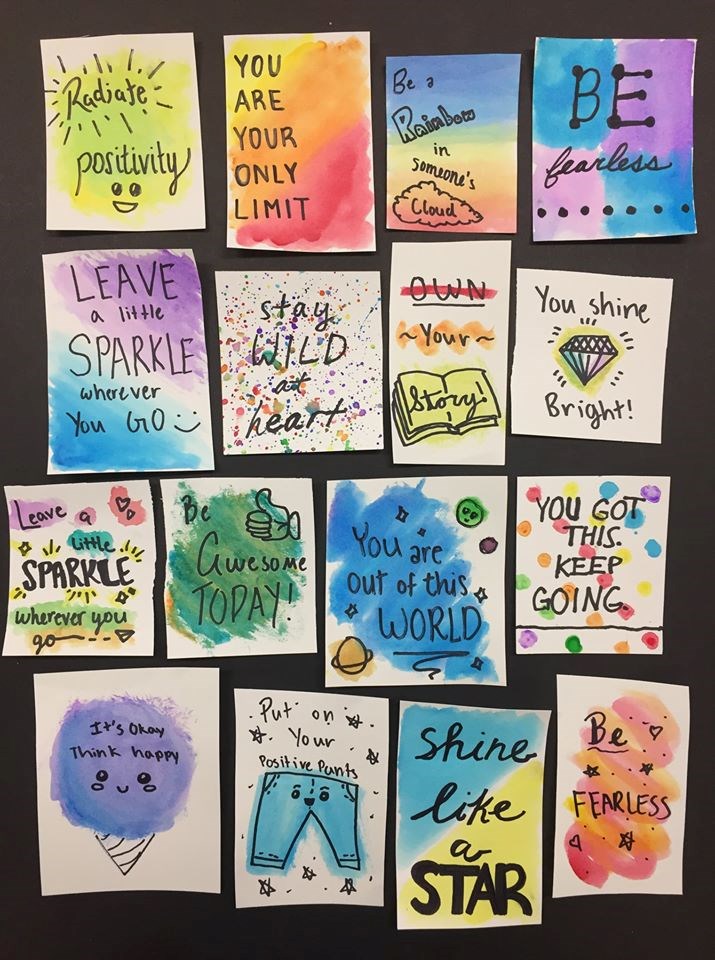 Radiate
positivity
YOU
ARE
YOUR
ONLY
LIMIT
Be a
Rainbow
in
someone's
Cloud
BE
fearless
LEAVE
a little
SPARKLE
wherever
You GO
stay
WILD
at
heart
OWN
~Your~
Story!
You shine
Bright!
Leave a
little
SPARKLE
wherever you
go
Be
Awesome
TODAY!
You are
out of this
WORLD
YOU GOT
THIS.
KEEP
GOING.
It's Okay
Think happy
Put on
Your
Positive Pants
Shine
like
a
STAR
Be
FEARLESS